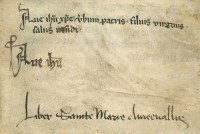 Aue ihu xpe verbum patris filius virginis
salus mundi
Aue ihu
Liber Sancte Marie Aureevallis